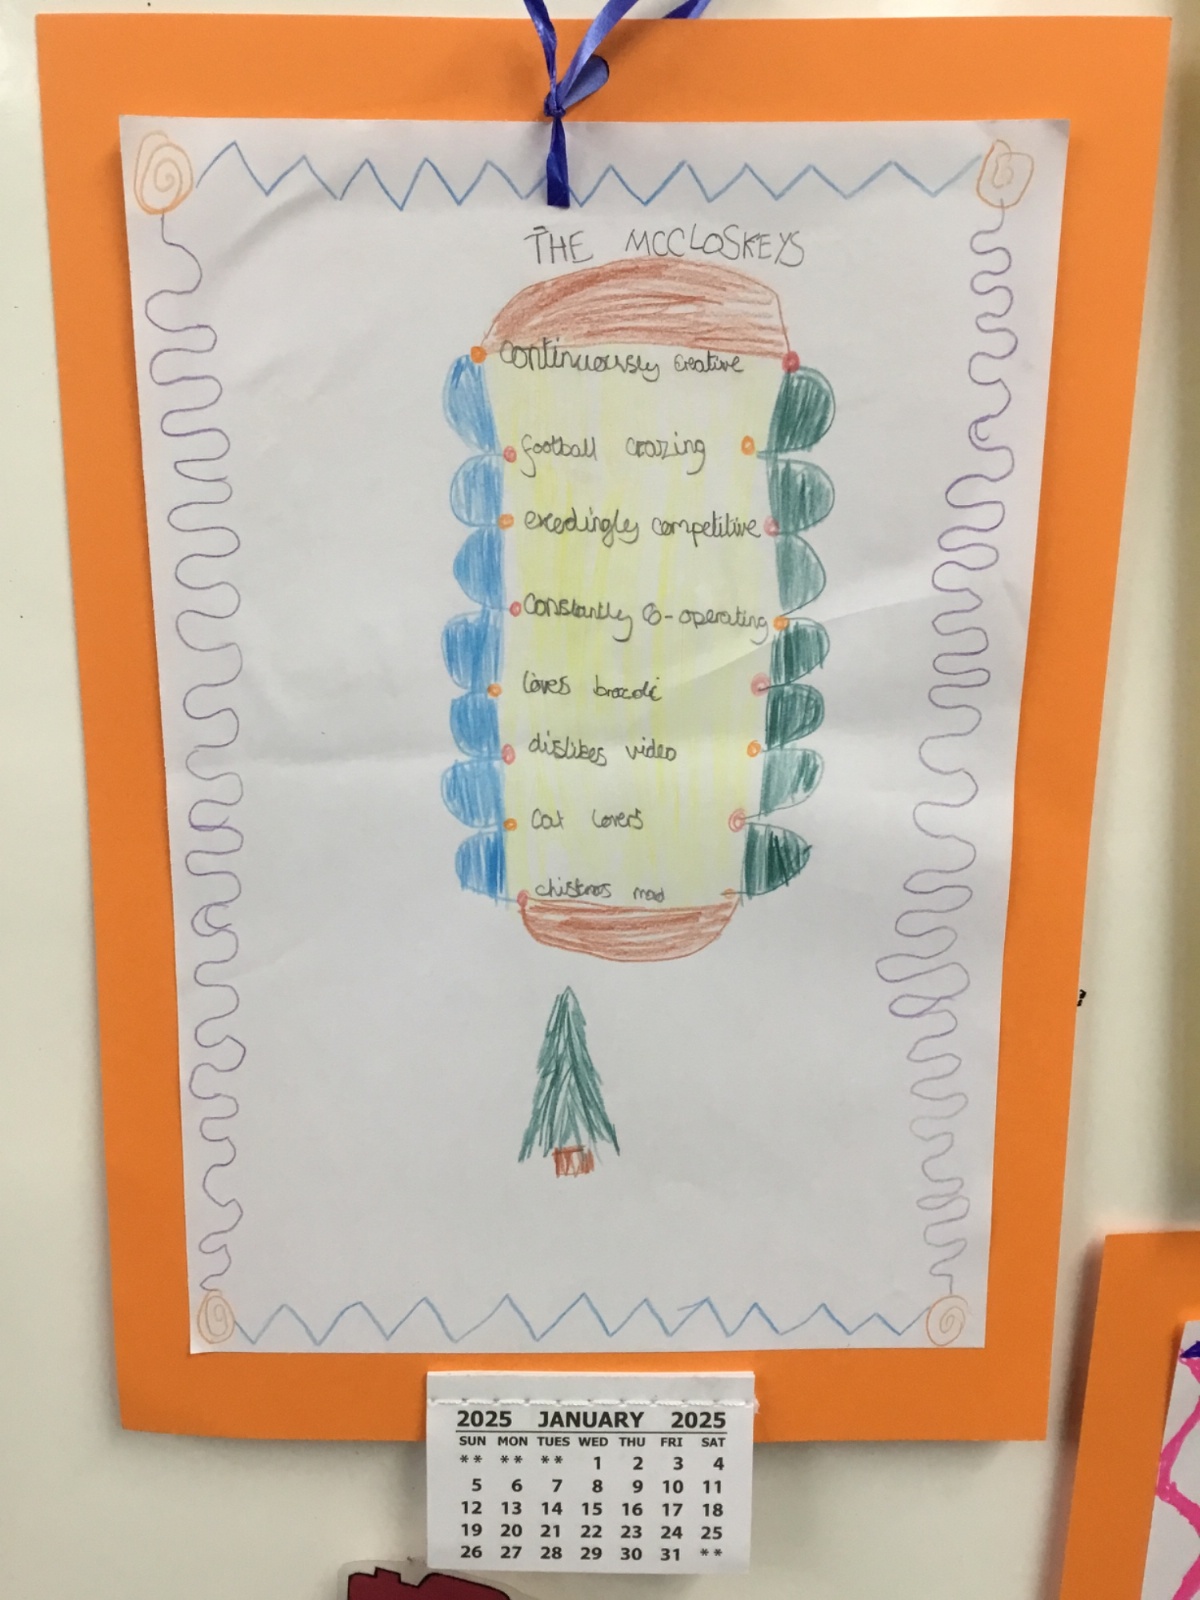 THE MCCLOSKEYS
continuously creative
football crazing
excedingly competitive
constantly co-operating
loves brocoli
dislikes video
Cat lovers
chistmas mad
2025 JANUARY 2025
SUN MON TUES WED THU FRI SAT
** ** ** 1 2 3 4
5 6 7 8 9 10 11
12 13 14 15 16 17 18
19 20 21 22 23 24 25
26 27 28 29 30 31 **